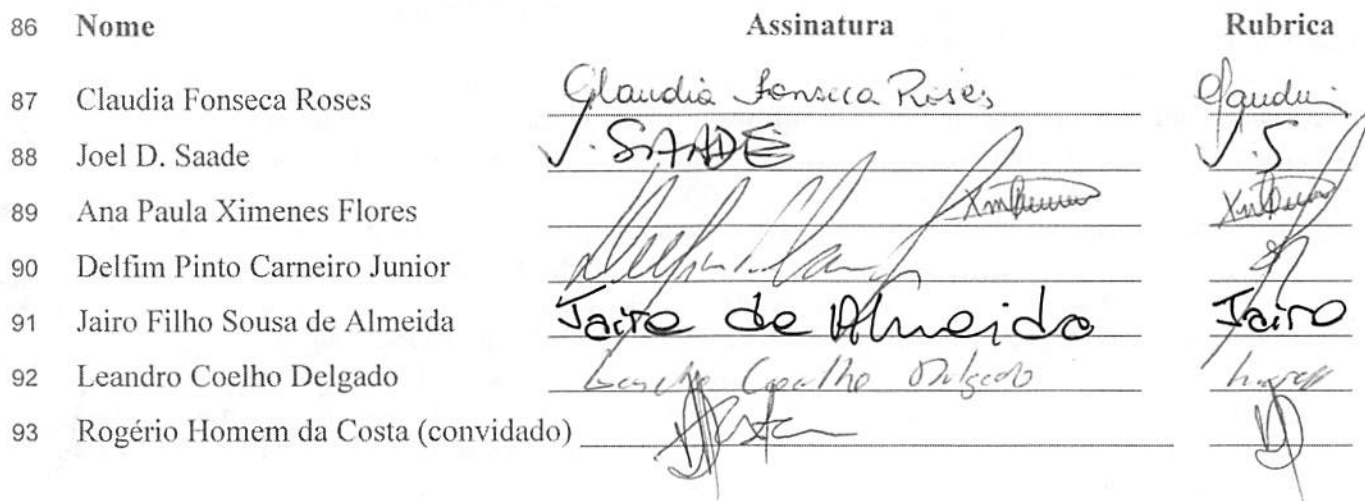 86 Nome Assinatura Rubrica
87 Claudia Fonseca Roses Claudia Fonseca Roses Claudia
88 Joel D. Saade J. SAADE J.S
89 Ana Paula Ximenes Flores
90 Delfim Pinto Carneiro Junior
91 Jairo Filho Sousa de Almeida Jairo de Almeida Jairo
92 Leandro Coelho Delgado Leandro Coelho Delgado
93 Rogério Homem da Costa (convidado)